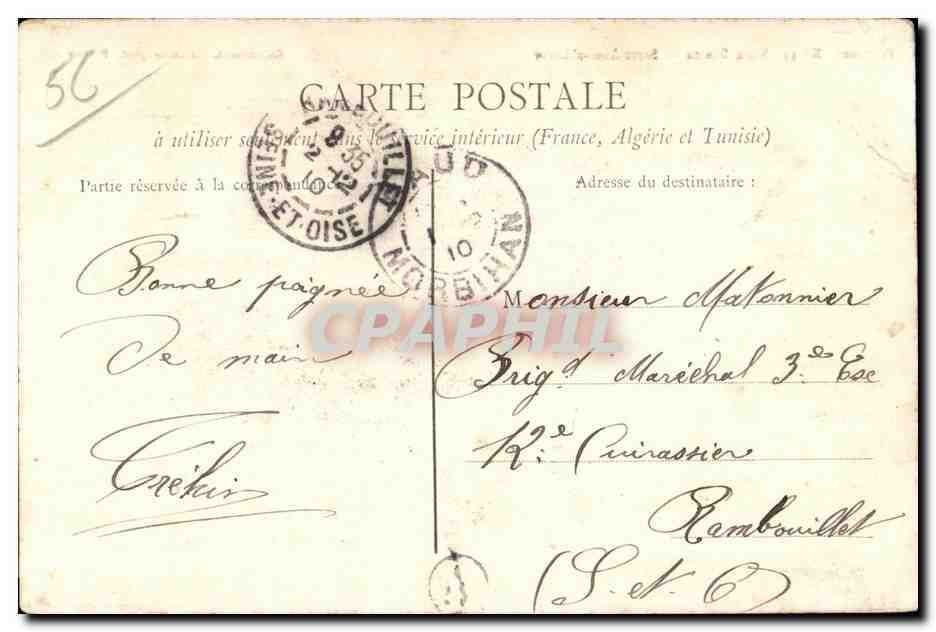 56
CARTE POSTALE
à utiliser seulement dans le service intérieur (France, Algérie et Tunisie)
Partie réservée à la correspondance
Adresse du destinataire :
RAMBOUILLET
9 35
2 -12
10
SEINE-ET-OISE
AUD
1
10
MORBIHAN
Bonne poignée
de main
Tréhin
Monsieur Matonnier
Brigd Maréchal 3e Esc
12e Cuirassier
Rambouillet
(S. et. O)
CPAPHIL
A